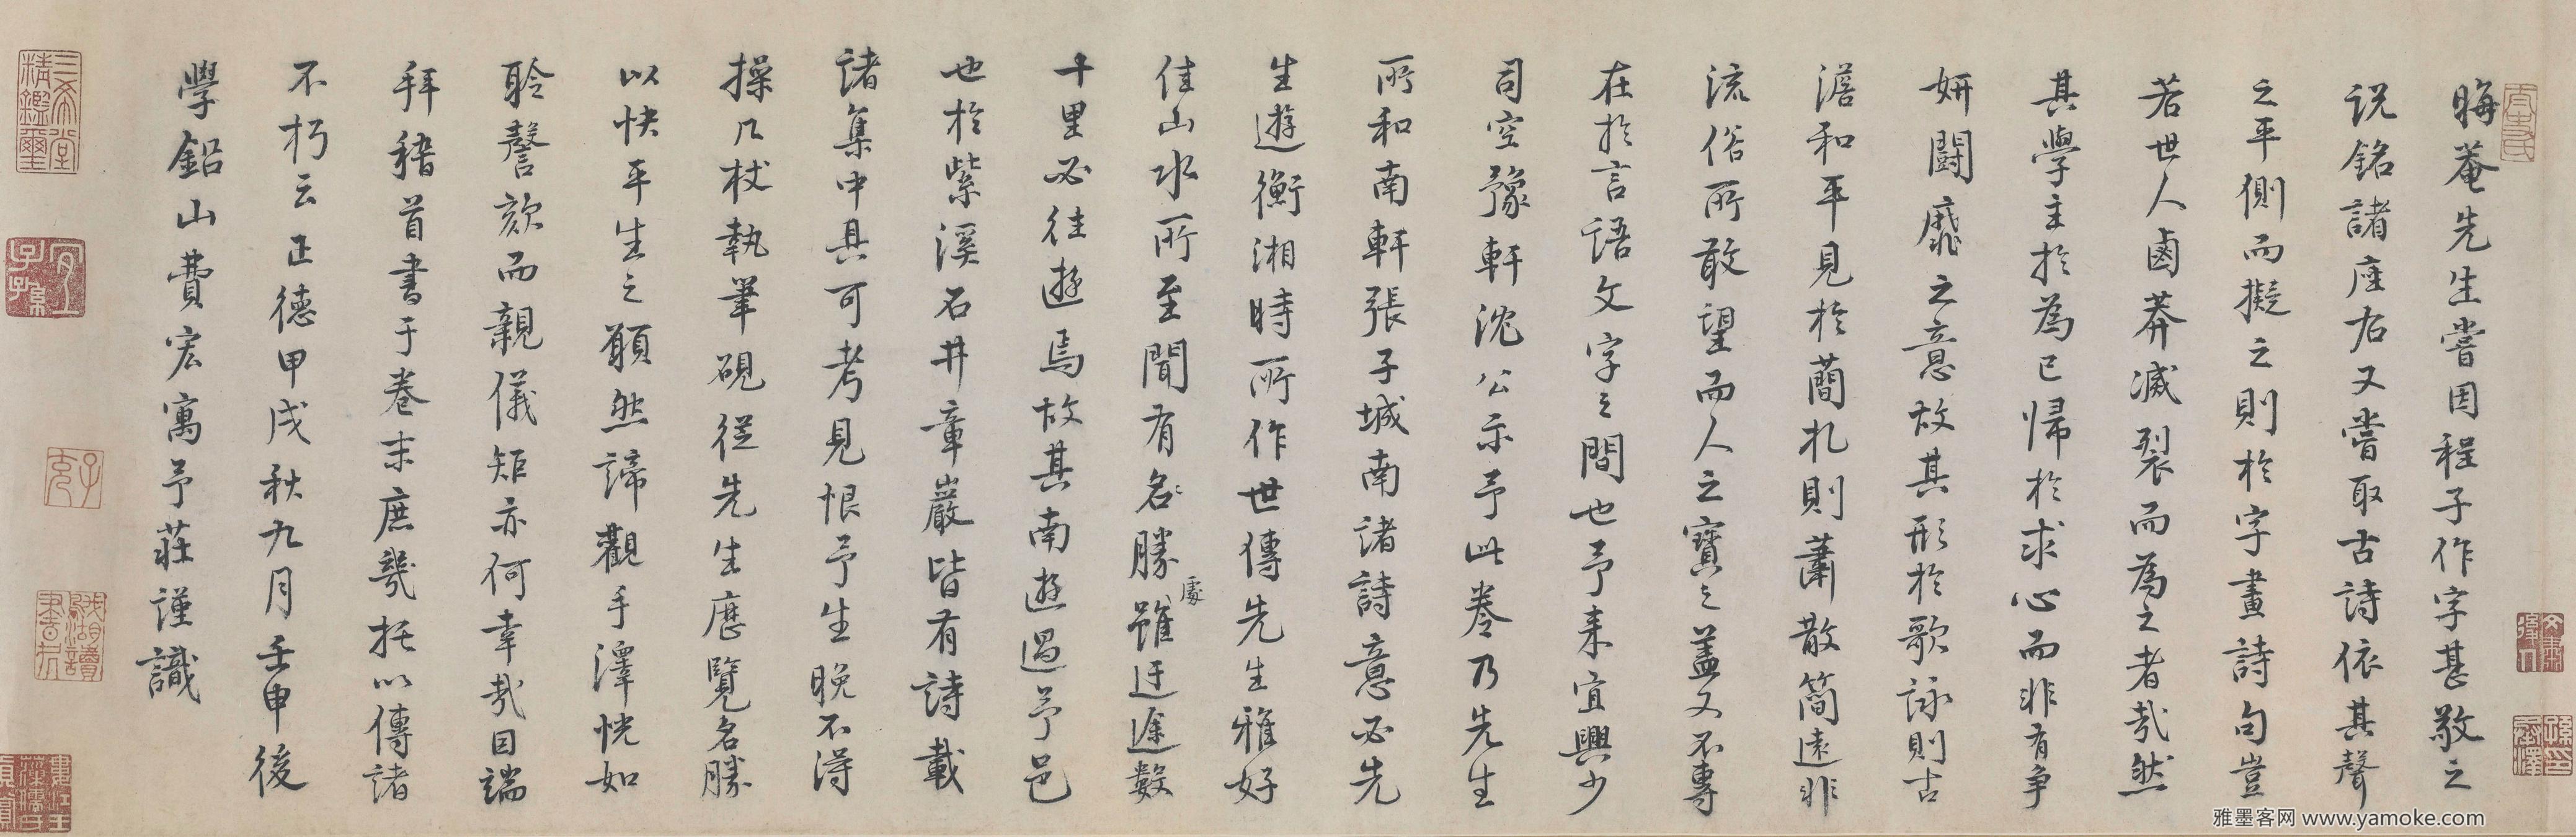 晦菴先生嘗因程子作字甚敬之
説銘諸座右又嘗取古詩依其聲
之平側而擬之則於字畫詩句豈
若世人鹵莽滅裂而為之者哉然
其學主於為己歸於求心而非有爭
妍鬪靡之意故其形於歌詠則古
澹和平見於蕳札則蕭散簡遠非
流俗所敢望而人之寶之蓋又不專
在於言語文字之間也予來宜興少
司空豫軒沈公示予此卷乃先生
所和南軒張子城南諸詩意必先
生遊衡湘時所作世傳先生雅好
佳山水所至聞有名勝處雖迂途數
十里必往遊焉故其南遊過予邑
也於紫溪石井章巖皆有詩載
諸集中具可考見恨予生晚不得
操几杖執筆硯從先生歷覽名勝
以快平生之願然諦觀手澤恍如
聆謦欬而親儀矩亦何幸哉因端
拜稽首書于卷末庶幾托以傳諸
不朽云正德甲戌秋九月壬申後
學鉛山費宏寓予莊謹識
三希堂精鑑璽
宜子孫
雅墨客网 www.yamoke.com